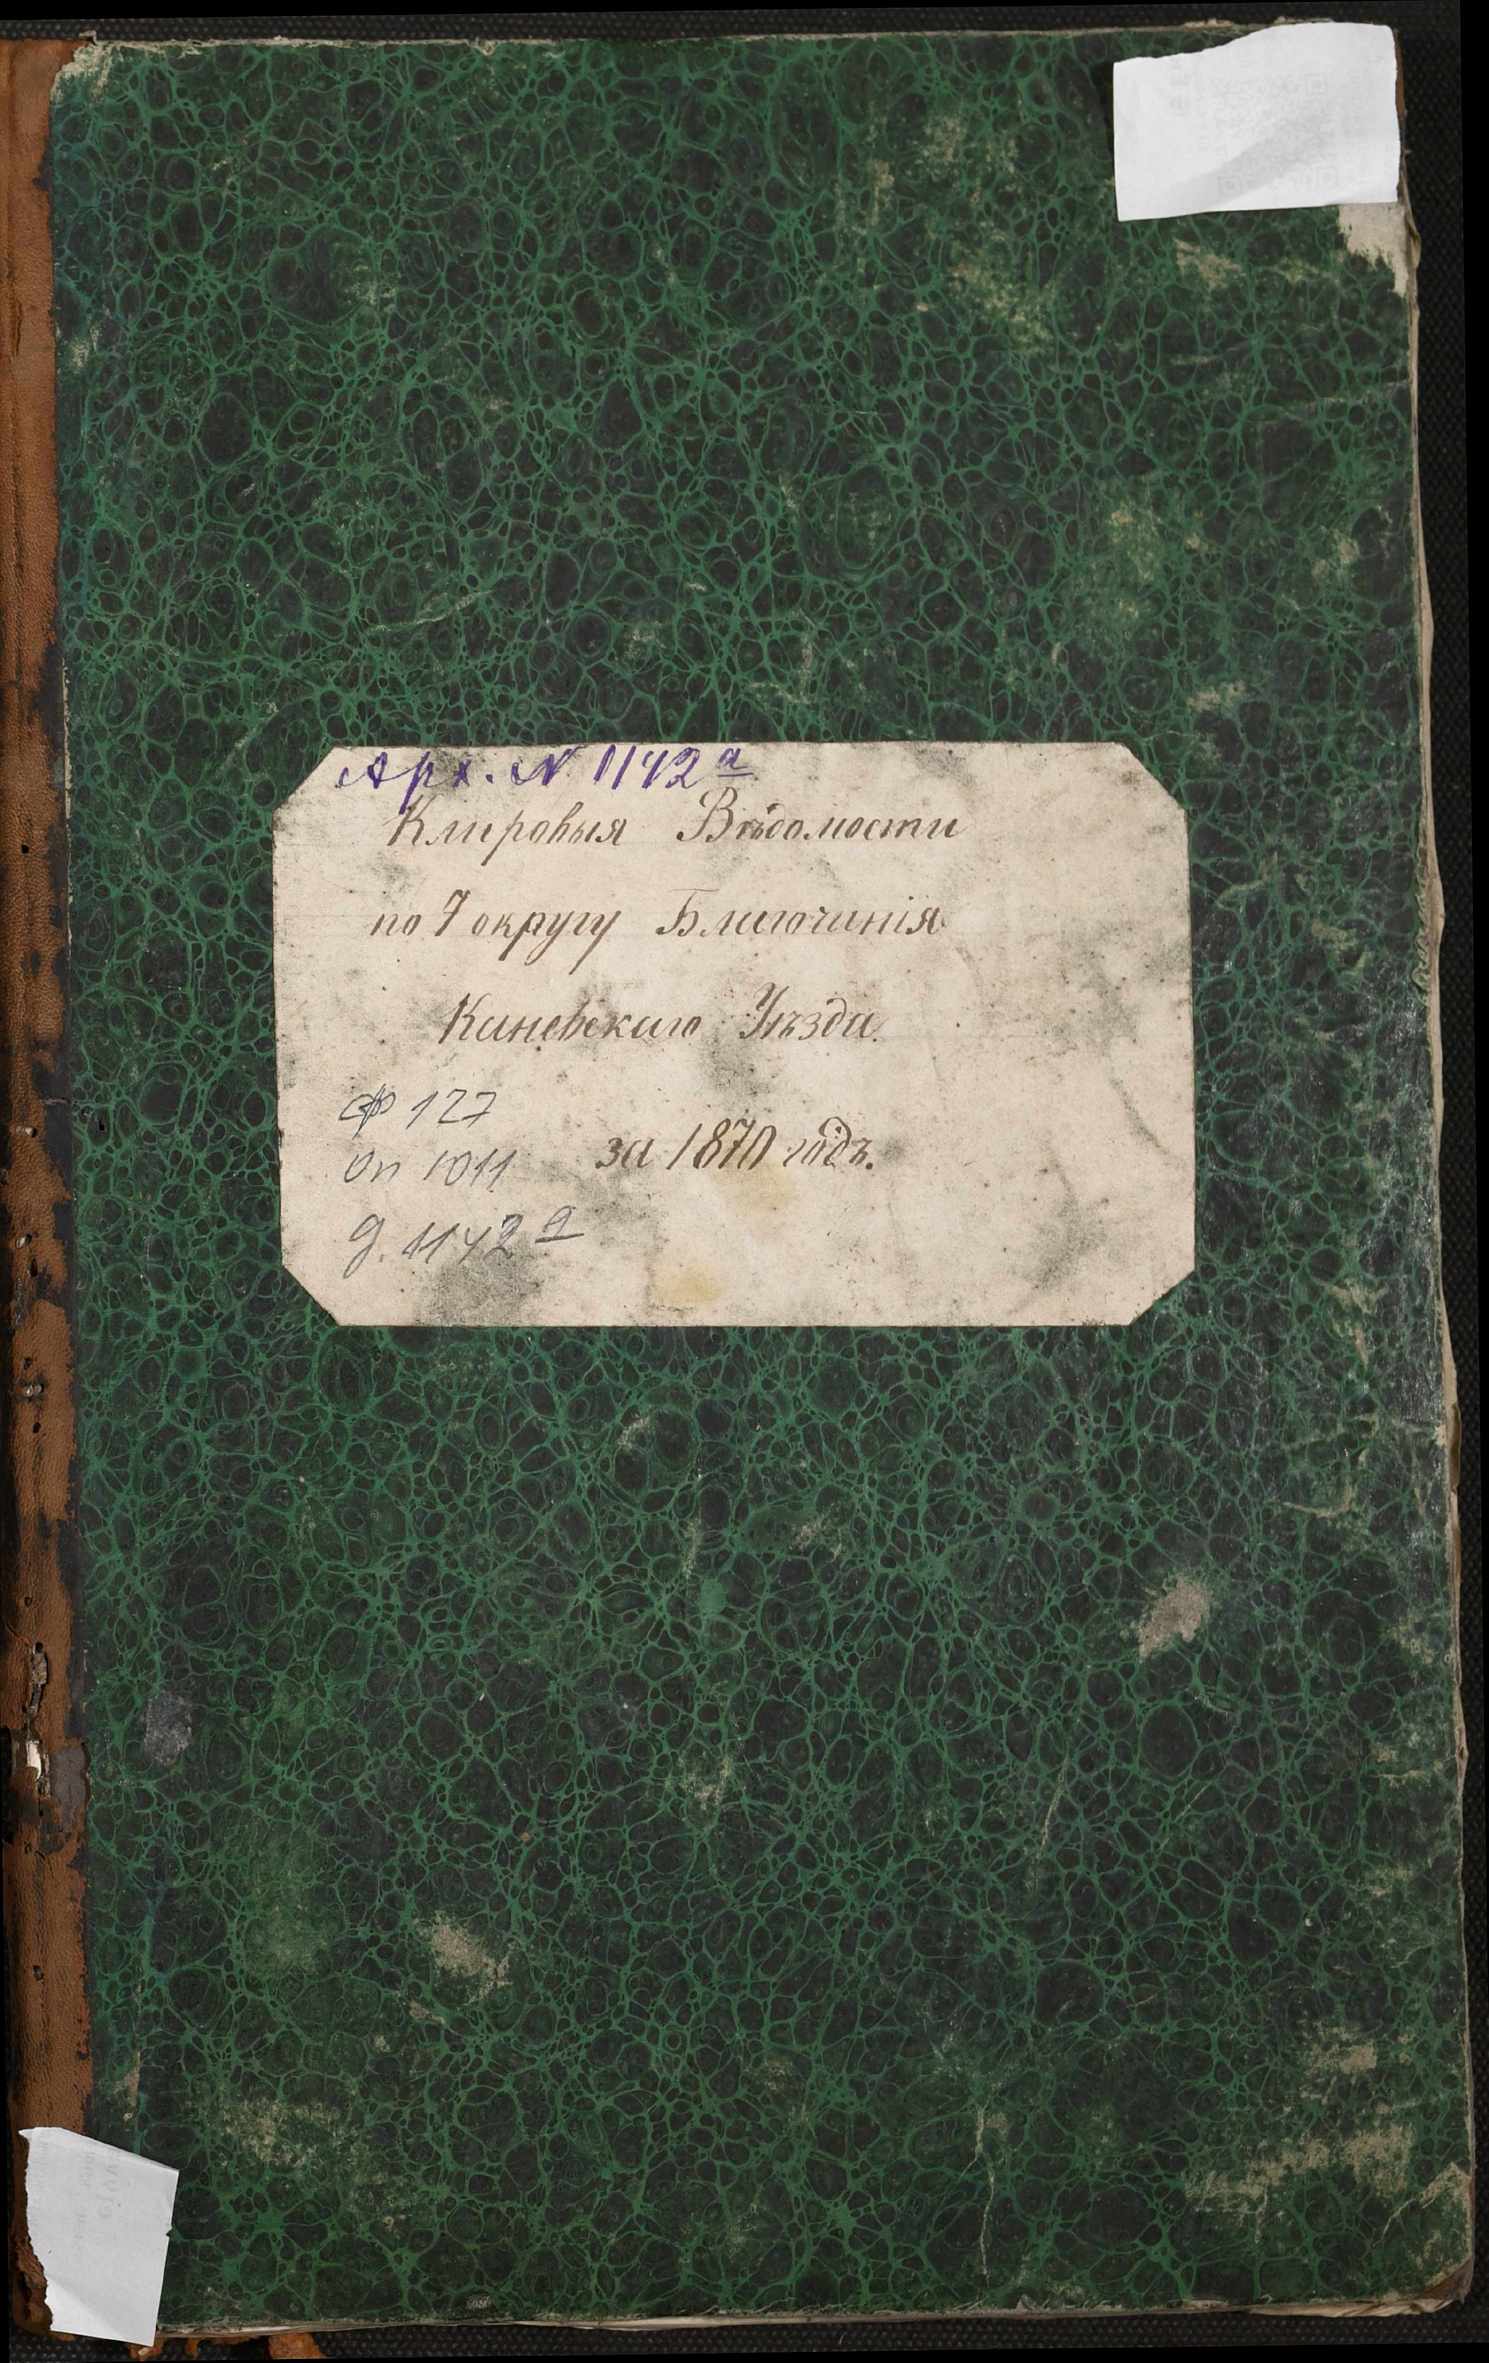 Арх. № 1142 а
Клировыя Вѣдомости
по 7 округу Благочинія
Каневскаго Уѣзда.
за 1870 годъ.
ф 127
оп 1011
д. 1142 а